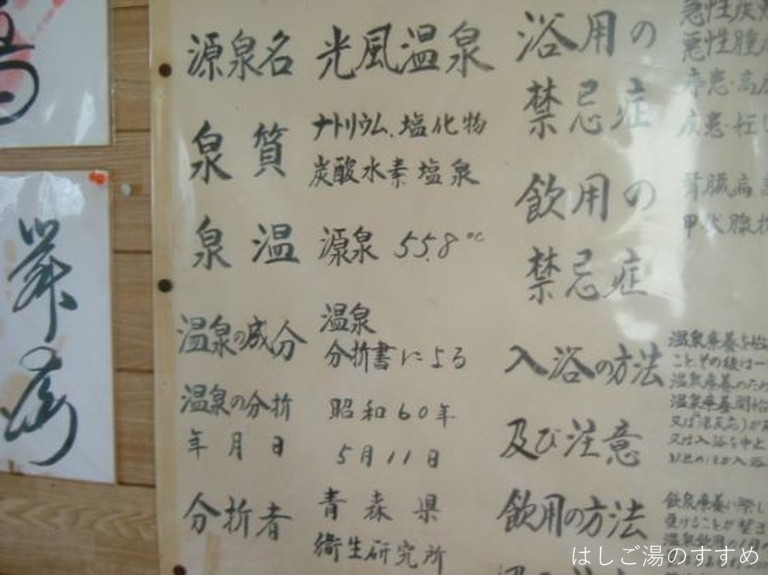 源泉名 光風温泉
泉質 ナトリウム.塩化物
炭酸水素塩泉
泉温 源泉 55.8℃
温泉の成分 温泉
分折書による
温泉の分折
年月日
昭和60年
5月11日
分折者 青森県
衛生研究所
浴用の
禁忌症
急性疾
悪性腫
高
飲用の
禁忌症
腎臓病
甲状腺
入浴の方法
及び注意
温泉療養を始
こと、その後は一
温泉療養のため
温泉療養開始
又は
又は入浴を中止
飲用の方法
飲泉療養に際し
受けることが望ま
はしご湯のすすめ